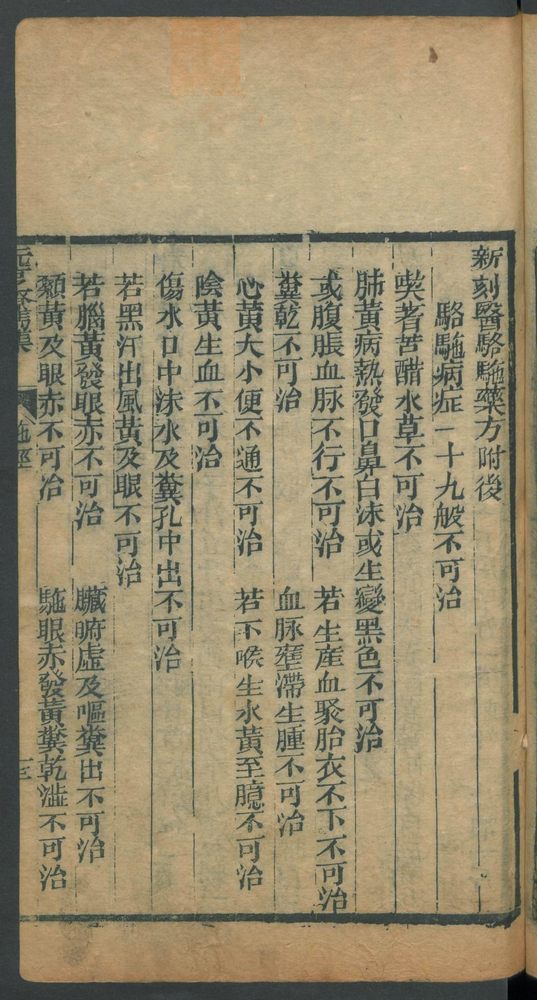 新刻醫駱駞藥方附後
駱駞病症一十九般不可治
喫著苦醋水草不可治
肺黃病熱發口鼻白沫或生變黑色不可治
或腹脹血脉不行不可治　若生產血聚胎衣不下不可治
糞乾不可治　血脉壅滯生腫不可治
心黃大小便不通不可治　若不喉生水黃至臆不可治
陰黃生血不可治
傷水口中沫水及糞孔中出不可治
若黑汗出風黃及眼不可治
若腦黃發眼赤不可治　臟腑虛及嘔糞出不可治
顙黃及眼赤不可治　駞眼赤發黃糞乾澁不可治
元亨療馬集　駞經　三